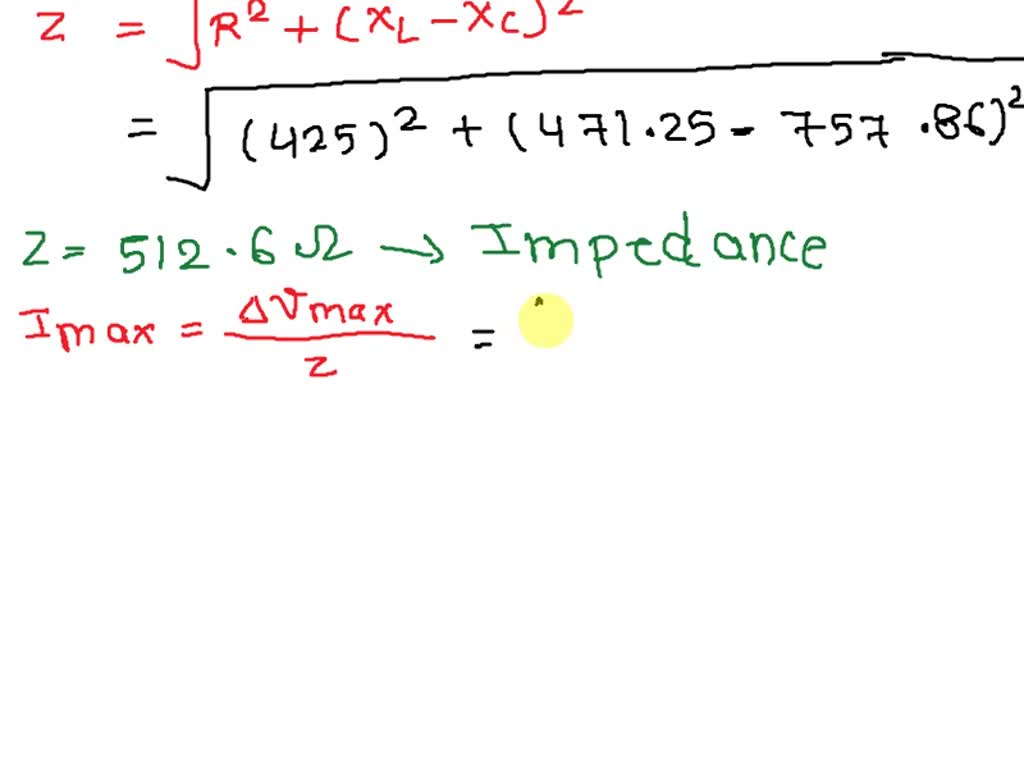 Z = √R² + (XL - XC)²
= √(425)² + (471.25 - 757.86)²
Z = 512.6 Ω → Impedance
Imax = ΔVmax / Z =